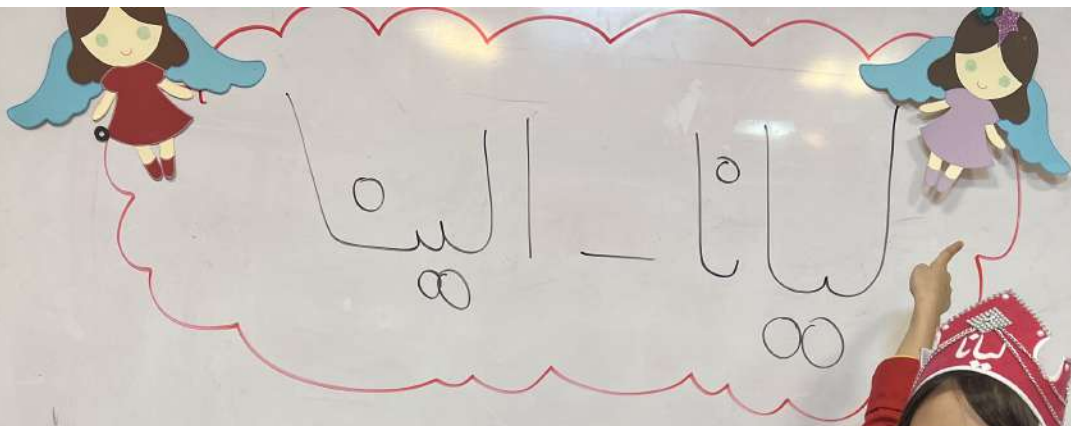 ليانا - الينا
ليانا